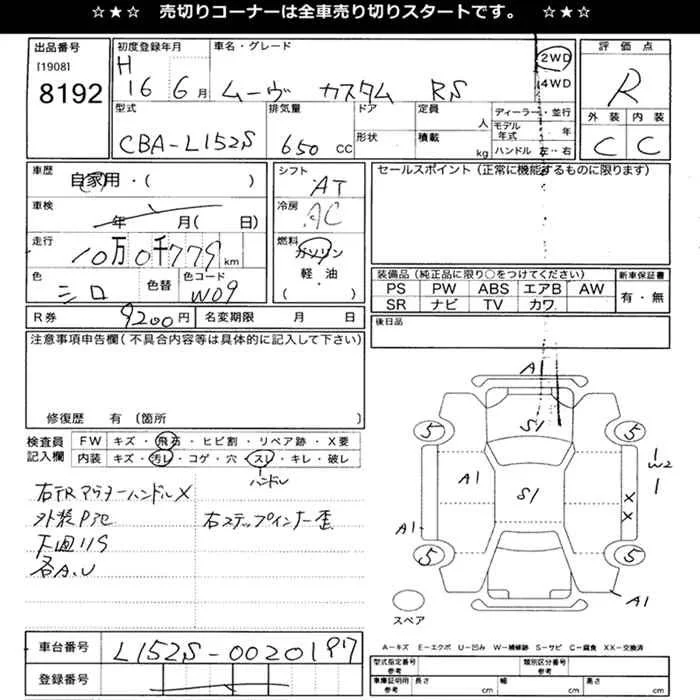 ☆★☆ 売切りコーナーは全車売り切りスタートです。 ☆★☆
出品番号
[1908]
8192
初度登録年月
H 16 6月
車名・グレード
ムーヴ カスタム RS
2WD
4WD
評価点
R
外装 内装
C C
型式
CBA-L152S
排気量
650 cc
ドア
形状
定員
人
積載
kg
ディーラー・並行
モデル年式 年
ハンドル 左・右
車歴
自家用・( )
車検
年 月( 日)
走行
10万0千779km
色
シロ
色替
色コード
W09
シフト
AT
冷房
AC
燃料
ガソリン
軽・油
( )
セールスポイント(正常に機能するものに限ります)
装備品(純正品に限り○をつけてください)
PS PW ABS エアB AW
SR ナビ TV カワ
新車保証書
有・無
R券 9200円
名変期限 月 日
後日品
注意事項申告欄(不具合内容等は具体的に記入して下さい)
修復歴 有(箇所 )
検査員記入欄
FW キズ・飛石・ヒビ割・リペア跡・X要
内装 キズ・汚レ・コゲ・穴・スレ・キレ・破レ
ハンドル
右FRアウターハンドルX
外装P他
右ステップインナー歪
下廻りS
各A.U
A1
5 5
S1
A1
S1
W2
X
X
A1
5 5
A1
スペア
A−キズ E−エクボ U−凹み W−補修跡 S−サビ C−腐食 XX−交換済
車台番号
L152S-0020197
登録番号
型式指定番号
参考
類別区分番号
参考
車庫証明用
参考
長さ cm
幅 cm
高さ cm